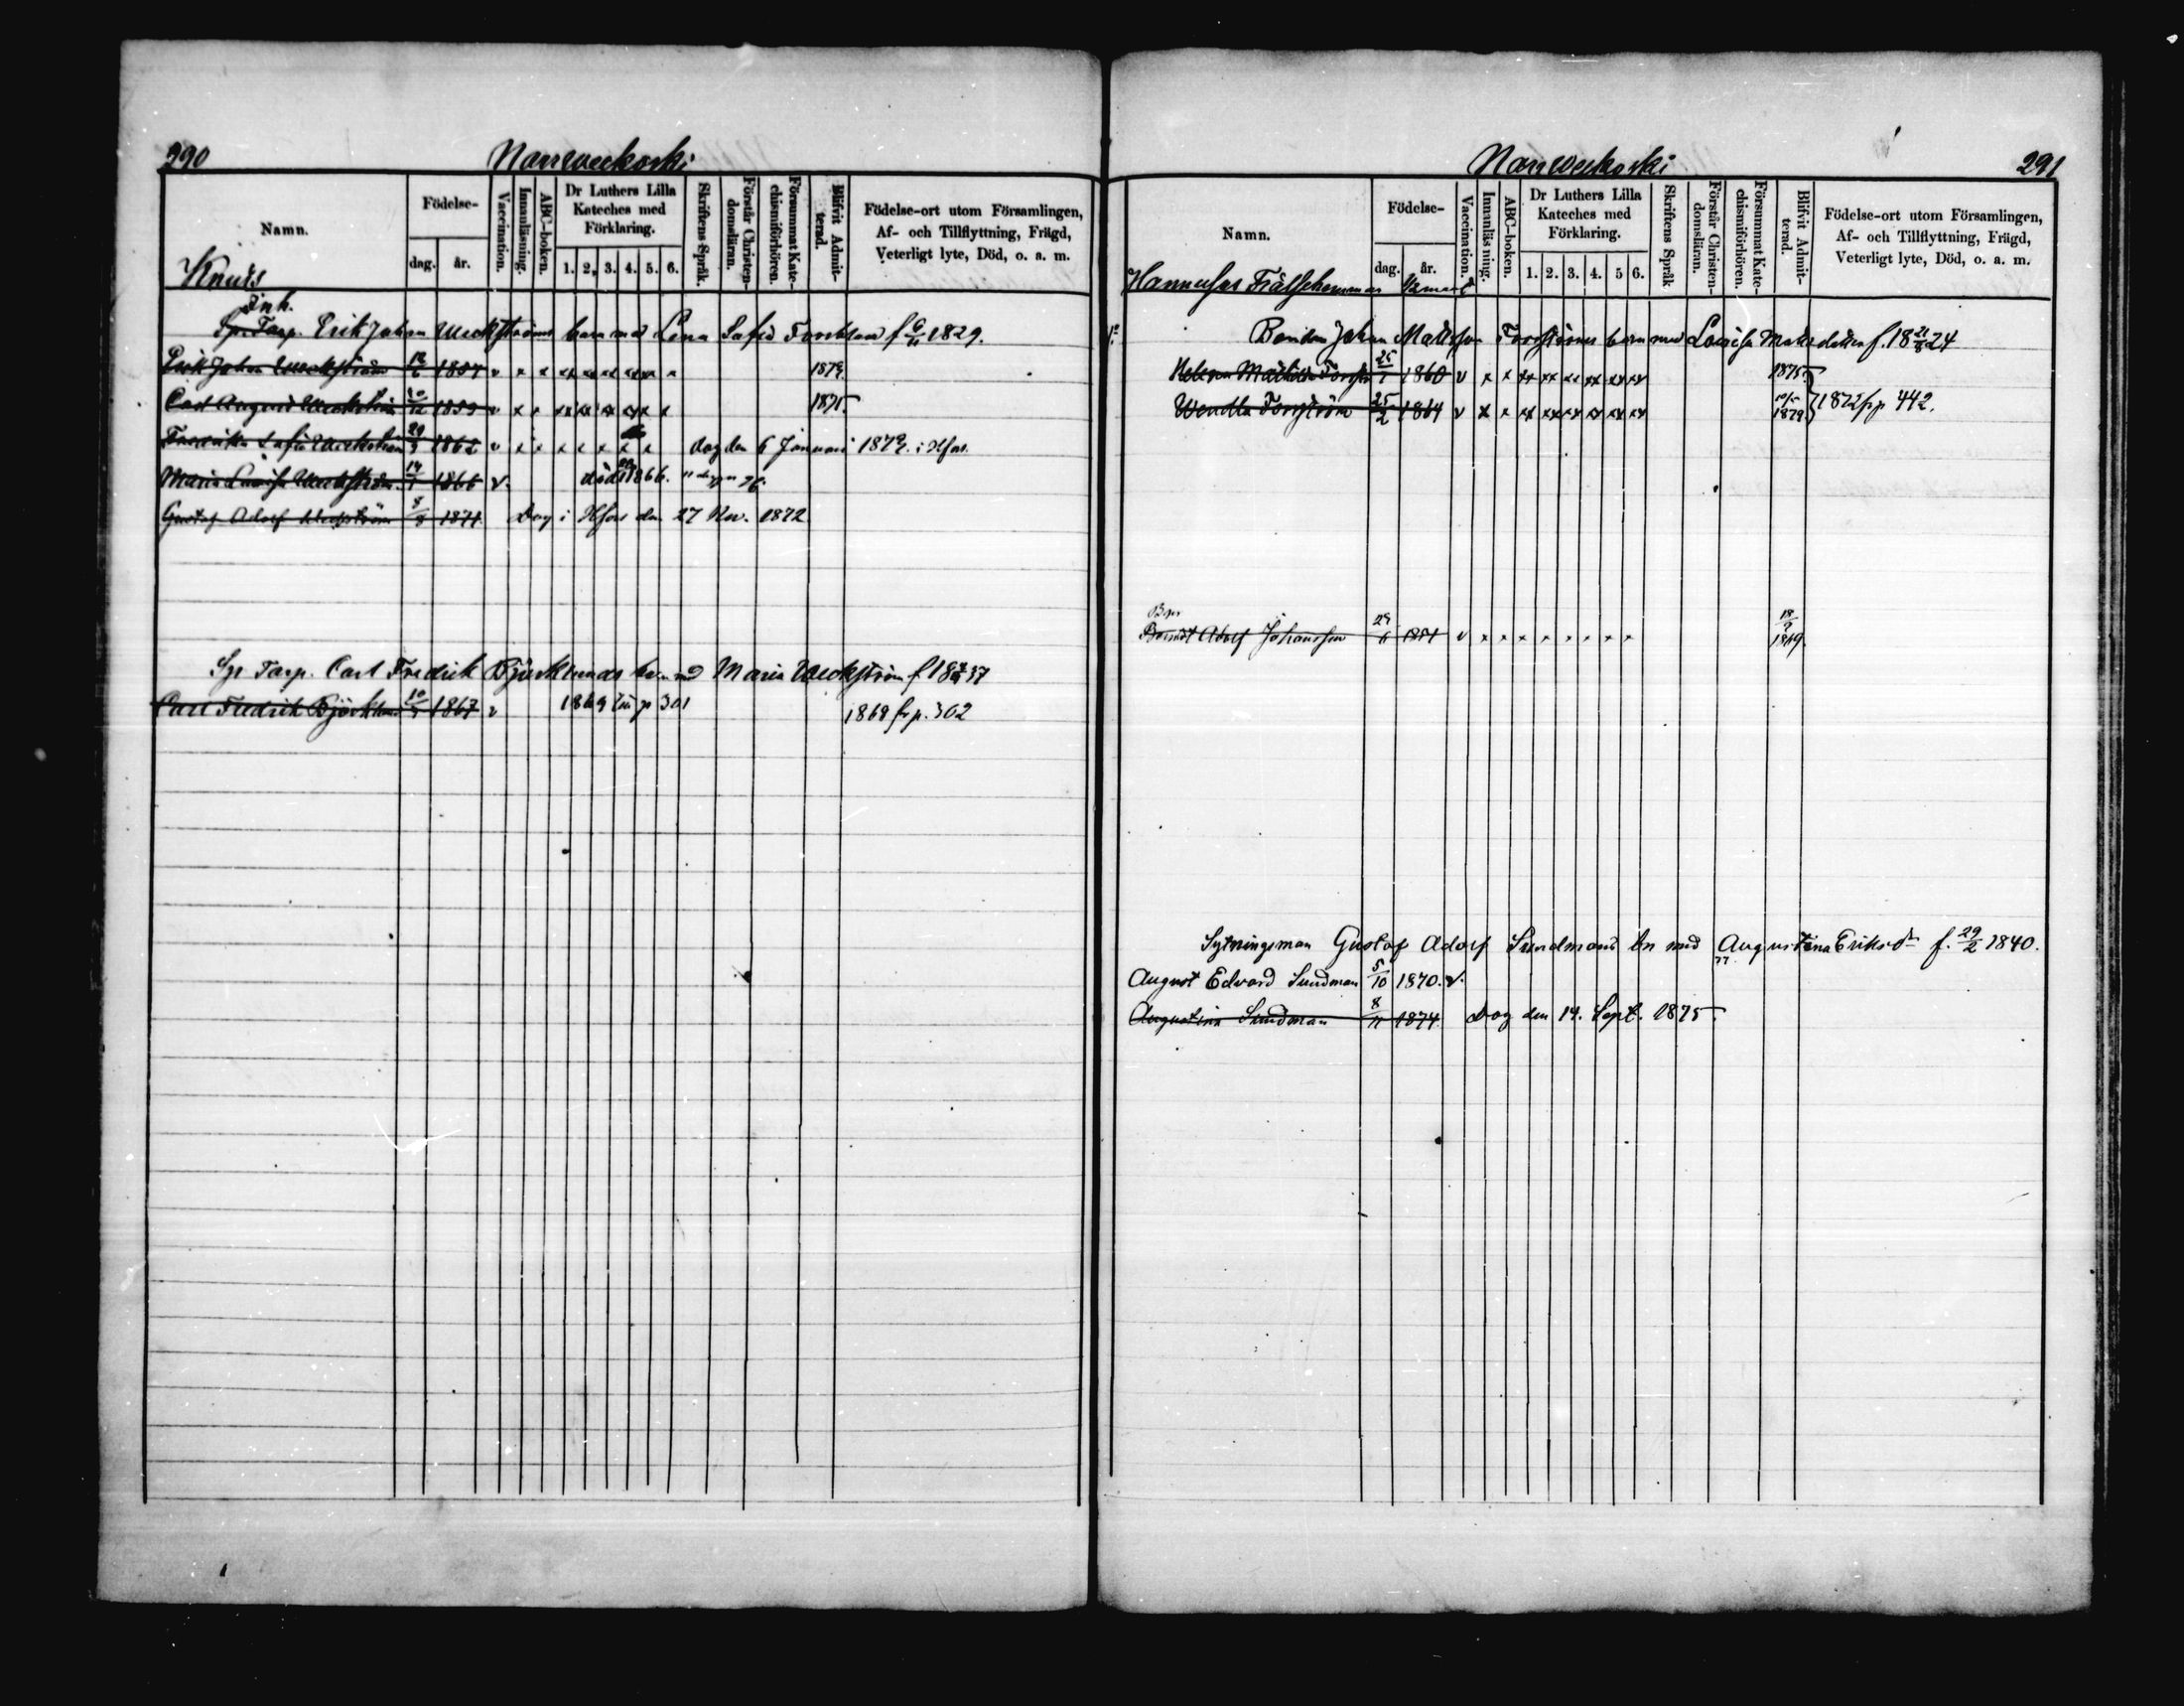 290
Narsweckoski
Namn.
Födelse-
dag.
år.
Vaccination.
Innanläsning.
ABC-boken.
Dr Luthers Lilla
Kateches med
Förklaring.
1. 2. 3. 4. 5. 6.
Skriftens Språk.
Förstår Christen-
domsläran.
Försummat Kate-
chismiförhören.
Blifvit Admit-
terad.
Födelse-ort utom Församlingen,
Af- och Tillflyttning, Frägd,
Veterligt lyte, Död, o. a. m.
Knuts
Inh.
Erik Johan Weckströms barn med Lena Sofia f 6/11 1829.
Erik Johan Weckström 1857 v x x xx xx xx xx x 1874.
Carl August Weckström 20/12 1859 v x x xx xx xx xx x x 1875.
Fredrika Sofia Weckström 29/9 1862 v x x x x x x x dog den 6 Januari 1872. i Hfors.
Maria Lovisa Weckström 14/1 1866 v. död 1866.
Gustaf Adolf Weckström 8/8 1871. Dog i Hfors den 27 Nov. 1872
Carl Fredrik Björklunds Maria Weckström f. 1837
Carl Fredrik Björklund 1867 v 1869 p 301 1868 fr p. 302
291
Narsweckoski
Namn.
Födelse-
dag.
år.
Vaccination.
Innanläsning.
ABC-boken.
Dr Luthers Lilla
Kateches med
Förklaring.
1. 2. 3. 4. 5 6.
Skriftens Språk
Förstår Christen-
domsläran.
Försummat Kate-
chismiförhören.
Blifvit Admit-
terad.
Födelse-ort utom Församlingen,
Af- och Tillflyttning, Frägd,
Veterligt lyte, Död, o. a. m.
Hannusas Frälsehemman
Bonden Johan Mattsson Forsströms barn med Lovisa Matsdotter f. 18 21/8 24
Helena Mathilda 25/1 1860 v x x xx xx xx xx xx xx 1875.
Wendla Forsström 25/2 1864 v x x xx xx xx xx xx xx 1879 1872 fr p 442.
Adolf Johansson 29 1851 v x x x x x x x x 18/9 1869.
Sytningsman Gustaf Adolf Sundmans bn med Augustina Eriksdr f. 29/2 1840.
August Edvard Sundman 5/10 1870. v.
Augustina Sundman 8/11 1874. Dog den 14. Sept. 1875.